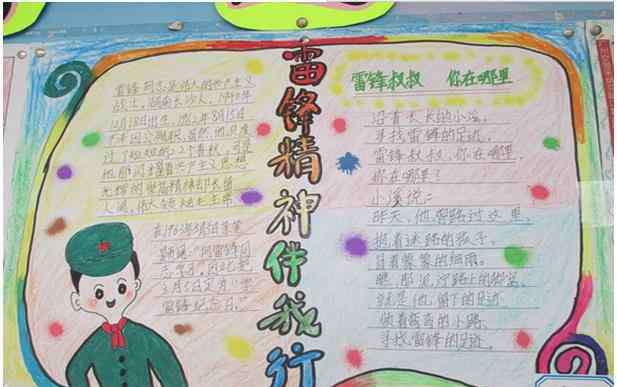 雷锋精神伴我行
雷锋同志是伟大的共产主义
战士,湖南长沙人,1940年
12月18日出生,1962年8月15日
不幸因公殉职。虽然,他只度
过了短短的22个春秋,可是
他那闪耀着共产主义思想
光辉的崇高精神却长留
人间,伟大领袖毛主席
在1963年3月5日亲笔
题词:“向雷锋同
志学习”,因此
3月5日定为“学
雷锋纪念日。”
雷锋叔叔 你在哪里
沿着长长的小溪,
寻找雷锋的足迹,
雷锋叔叔,你在哪里,
你在哪里?
小溪说:
昨天,他曾路过这里,
抱着迷路的孩子,
冒着蒙蒙的细雨。
瞧,那泥泞路上的脚窝,
就是他留下的足迹
顺着弯弯的小路,
寻找雷锋的足迹。